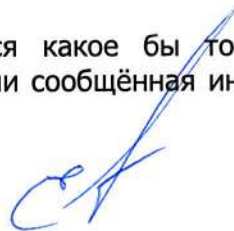 ся какое бы то
ли сообщённая ин